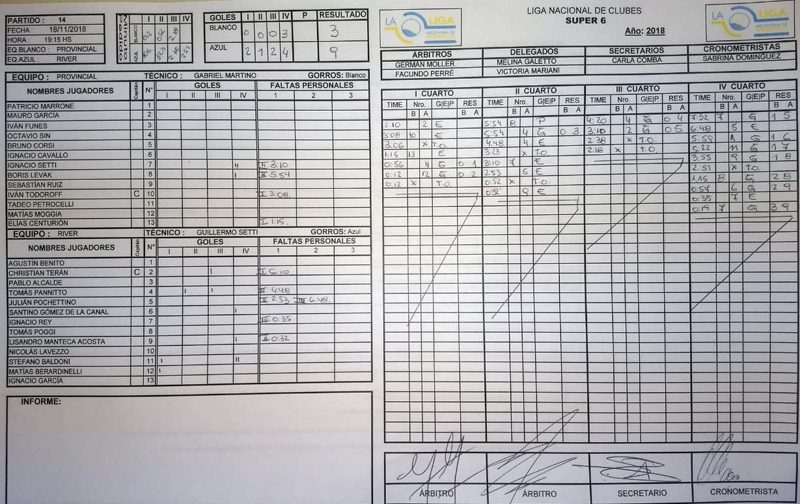 PARTIDO : 14
FECHA : 18/11/2018
HORA : 19:15 HS
EQ.BLANCO : PROVINCIAL
EQ.AZUL : RIVER
I II III IV
BLANCO
AZUL
GOLES I II III IV P RESULTADO
BLANCO 0 0 0 3 3
AZUL 2 1 2 4 9
LA LIGA
LIGA NACIONAL DE CLUBES
SUPER 6
Año: 2018
LA LIGA
ARBITROS DELEGADOS SECRETARIOS CRONOMETRISTAS
GERMÁN MOLLER MELINA GALETTO CARLA COMBA SABRINA DOMINGUEZ
FACUNDO PERRÉ VICTORIA MARIANI
EQUIPO : PROVINCIAL TÉCNICO : GABRIEL MARTINO GORROS: Blanco
NOMBRES JUGADORES Capitán N° GOLES FALTAS PERSONALES
I II III IV 1 2 3
PATRICIO MARRONE 1
MAURO GARCÍA 2
IVÁN FUNES 3
OCTAVIO SIN 4
BRUNO CORSI 5
IGNACIO CAVALLO 6
IGNACIO SETTI 7 II 3.10
BORIS LEVAK 8 II 5.54
SEBASTIÁN RUIZ 9
IVÁN TODOROFF C 10 I 3.08
TADEO PETROCELLI 11
MATÍAS MOGGIA 12
ELÍAS CENTURIÓN 13 I 1.15
EQUIPO : RIVER TÉCNICO : GUILLERMO SETTI GORROS: Azul
NOMBRES JUGADORES Capitán N° GOLES FALTAS PERSONALES
I II III IV 1 2 3
AGUSTÍN BENITO 1
CHRISTIAN TERÁN C 2 I 6.10
PABLO ALCALDE 3
TOMÁS PANNITTO 4 II 4.48
JULIÁN POCHETTINO 5 II 2.53 IV 6.48
SANTINO GÓMEZ DE LA CANAL 6
IGNACIO REY 7 0.35
TOMÁS POGGI 8
LISANDRO MANTECA ACOSTA 9 II 0.32
NICOLÁS LAVEZZO 10
STEFANO BALDONI 11
MATÍAS BERARDINELLI 12
IGNACIO GARCÍA 13
INFORME:
I CUARTO II CUARTO III CUARTO IV CUARTO
TIME Nro. G|E|P RES TIME Nro. G|E|P RES TIME Nro. G|E|P RES TIME Nro. G|E|P RES
B A B A B A B A B A B A B A B A
2 E 5.54 8 P 4:20 4 G 0 4 7 G 1 5
3:08 10 E 5.54 4 G 0 3 3:10 2 G 0 5 6.48 5 E
3.06 x T.O. 4.48 4 E 2.38 x T.O. G 1 6
1:15 13 E 3.23 x T.O. 2.18 x T.O. 5.22 11 G 1 7
0.56 4 G 0 1 3.10 7 E 3.55 9 G 1 8
0.12 12 G 0 2 2.53 5 E 2.51 x T.O.
0.12 x T.O. 0.52 x T.O. 8 G 2 8
9 E 6 G 2 9
0.35 7 E
7 G 3 9
ARBITRO ARBITRO SECRETARIO CRONOMETRISTA